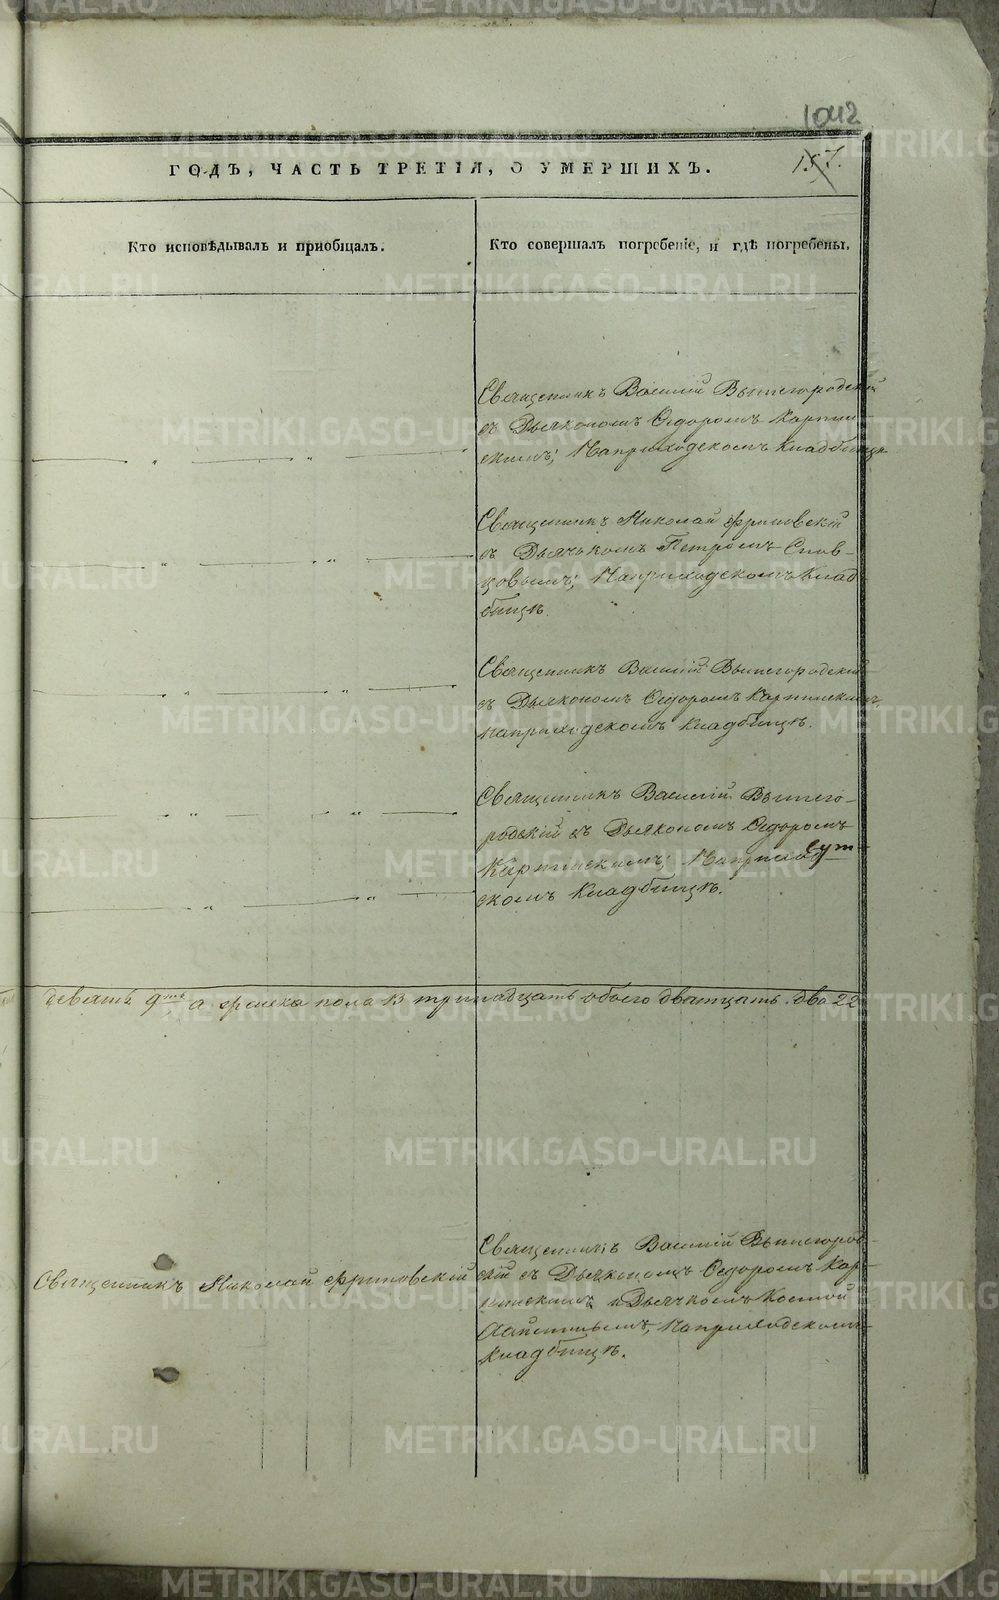 1042
ГОДЪ, ЧАСТЬ ТРЕТІЯ, О УМЕРШИХЪ.
157.
Кто исповѣдывалъ и пріобщалъ.
Кто совершалъ погребеніе, и гдѣ погребены.
Священникъ Василій Вышегородскій
съ Дьякономъ Ѳедоромъ Карпин-
скимъ; На приходскомъ кладбищѣ
Священникъ Николай Фриновскій
съ Дьячькомъ Петромъ Слов-
цовымъ; На приходскомъ клад-
бищѣ.
Священникъ Василій Вышегородскій
съ Дьякономъ Ѳедоромъ Карпинскимъ,
на приходскомъ кладбищѣ.
Священникъ Василій Вышего-
родскій съ Дьякономъ Ѳедоромъ
Карпинскимъ; На приход-
скомъ кладбищѣ.
девять 9ть а женска пола 13 тринадцать обоего дватцать два 22
Священникъ Николай Фриновскій
Священникъ Василій Вышегород-
скій съ Дьякономъ Ѳедоромъ Кар-
пинскимъ и Дьячькомъ
На приходскомъ
кладбищѣ.
METRIKI.GASO-URAL.RU